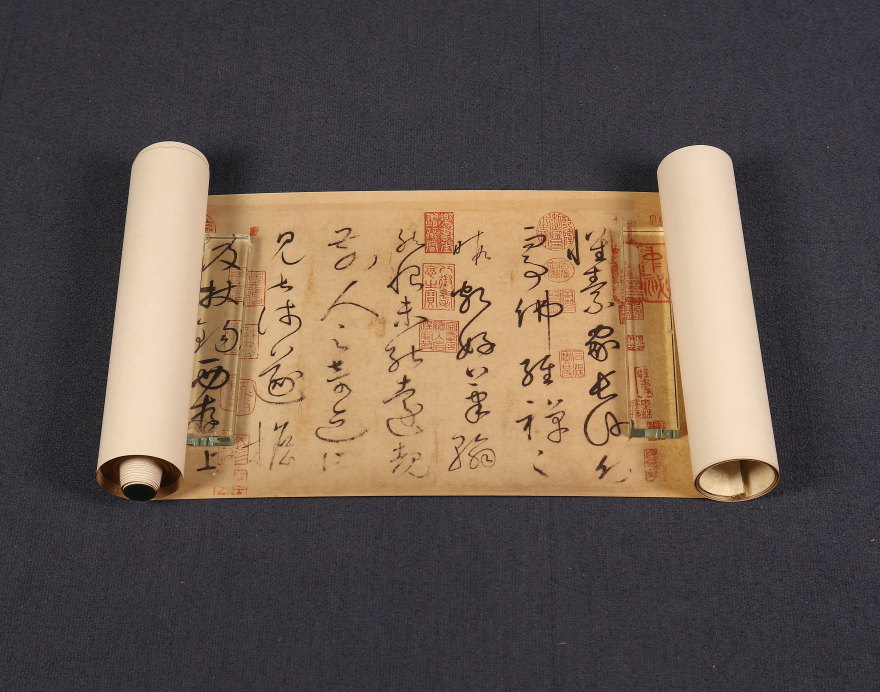 懷素家長沙幼而
事佛經禪之
暇頗好筆翰
然恨未能遠覩
前人之奇迹所
見甚淺遂擔
笈杖錫西遊上